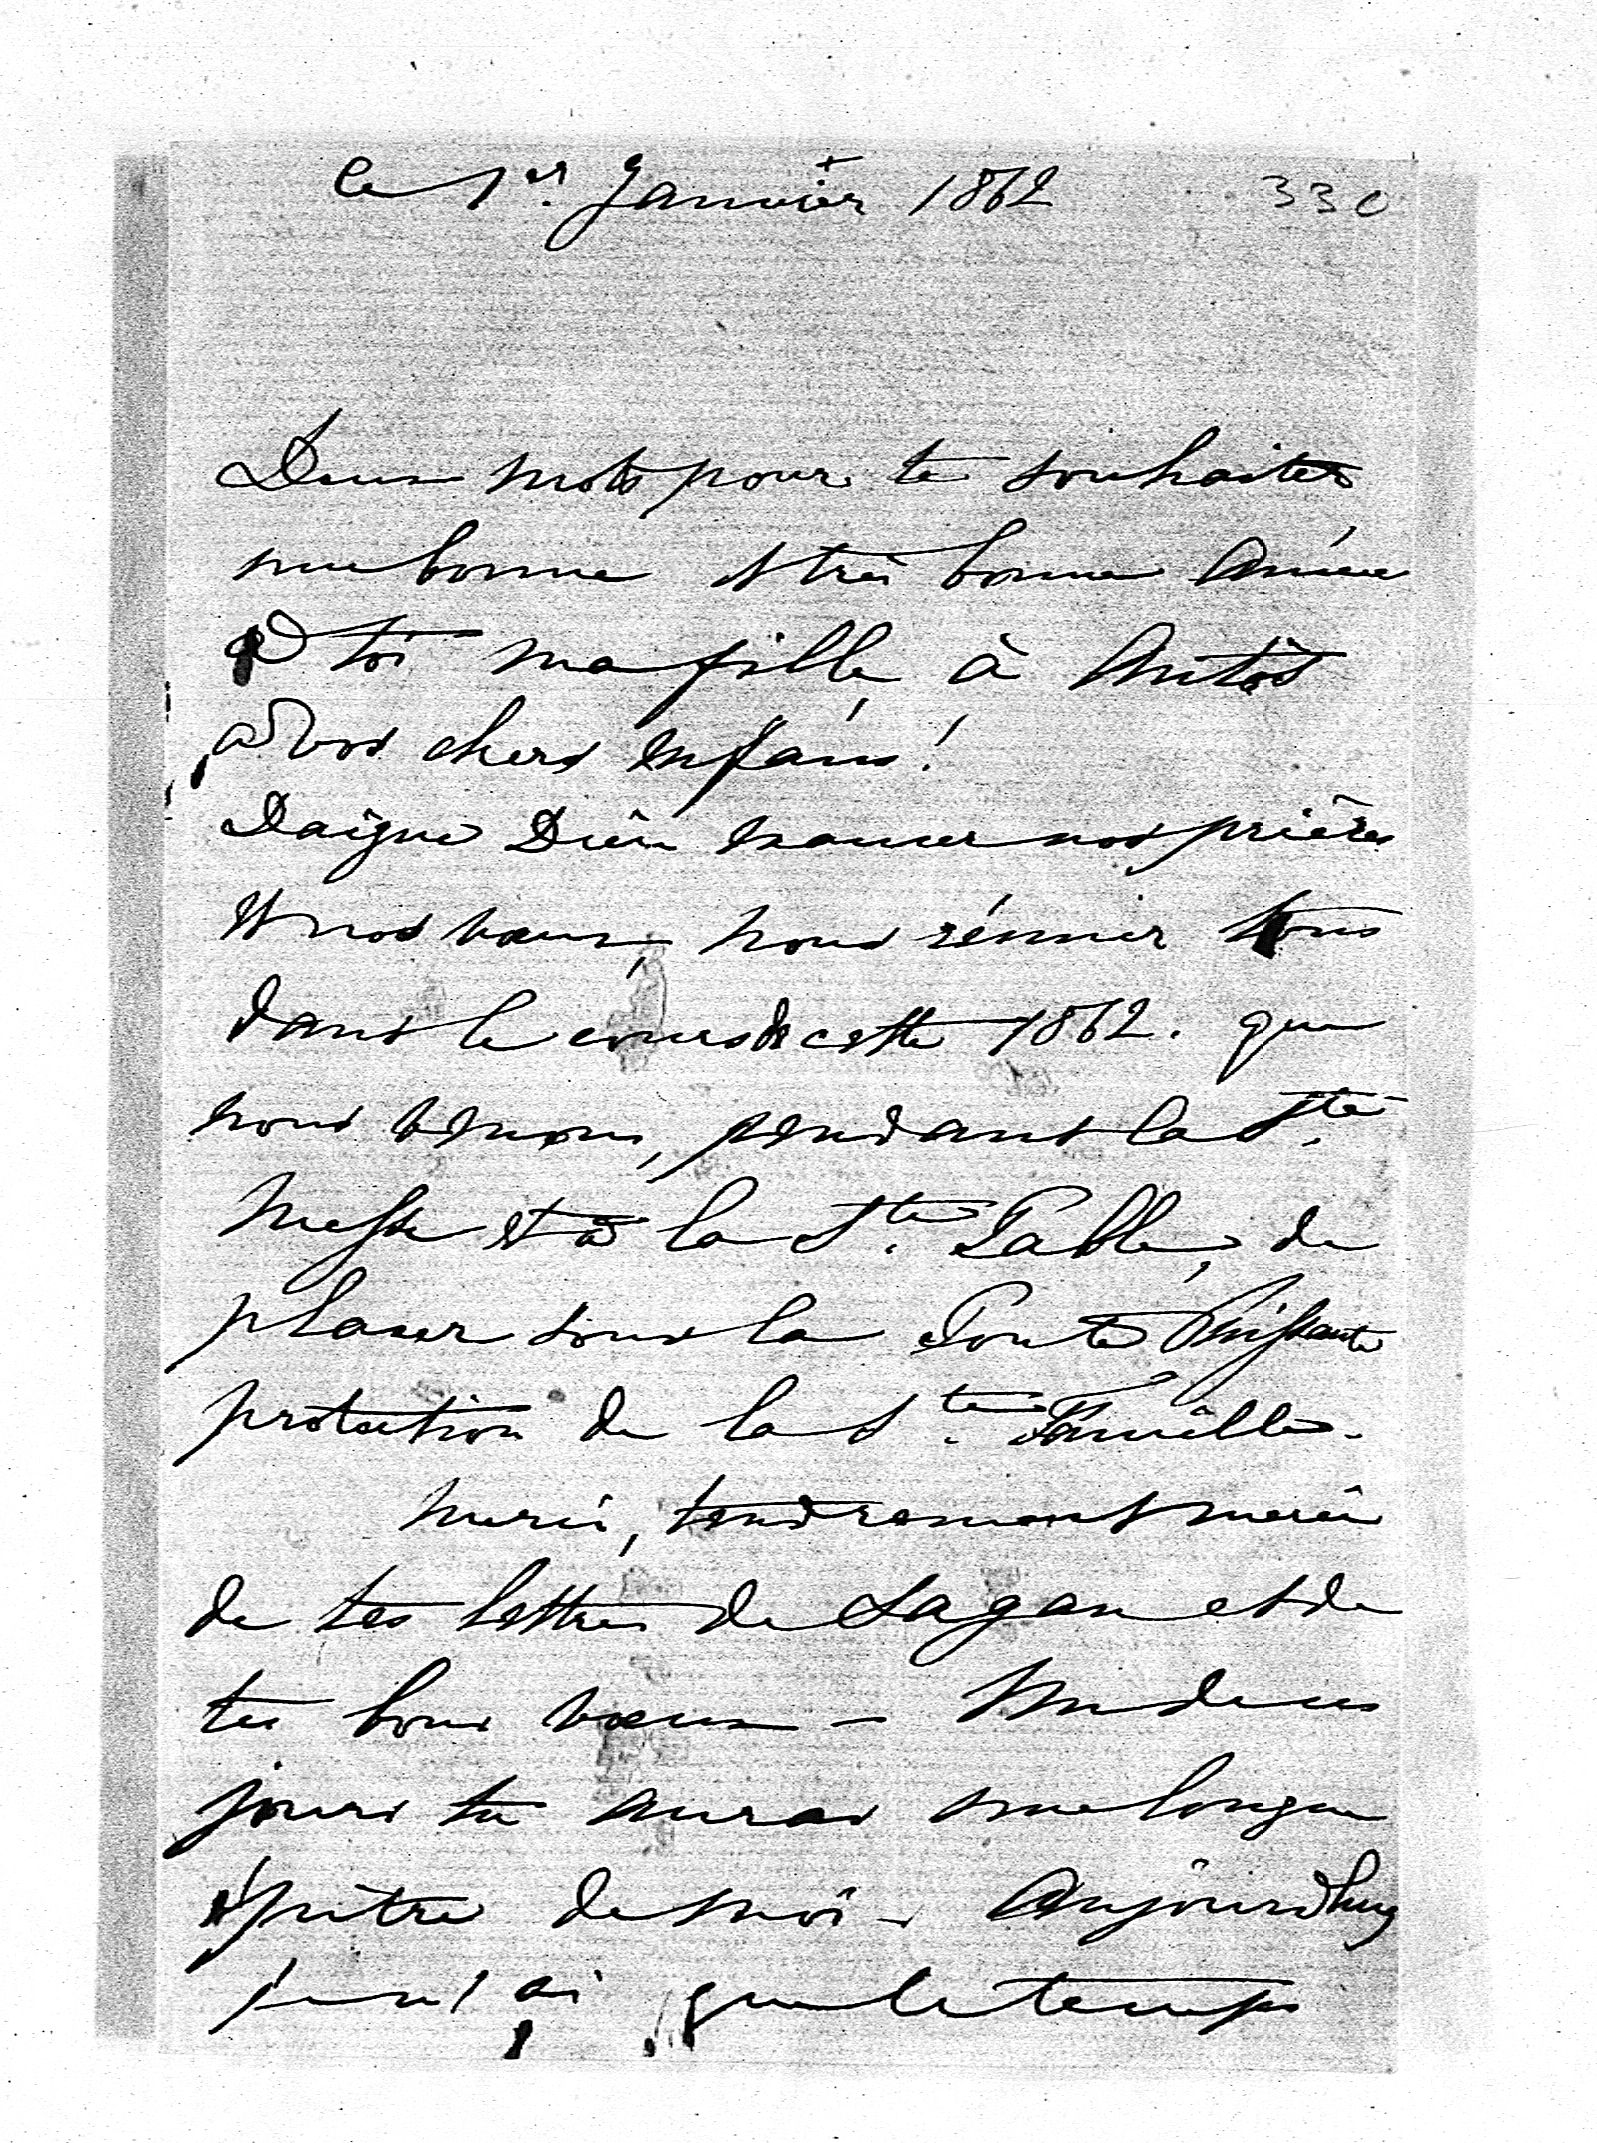 le 1er. Janvier 1862 330
Deux mots pour te souhaiter
une bonne et très bonne Année
à toi ma fille, à Antos
à vos chers enfans!
Daigne Dieu exaucer nos prières
et nos vœux, nous réunir tous
dans le cours de cette 1862. que
nous venons, pendant la Ste.
Messe et à la Ste. Table, de
placer sous la Toute Puissante
protection de la Ste. Famille.
Merci, tendrement merci
de tes lettres de Sagan et de
tes bons vœux – Un de ces
jours tu auras une longue
épitre de moi – Aujourdhuy
je n'ai que le temps